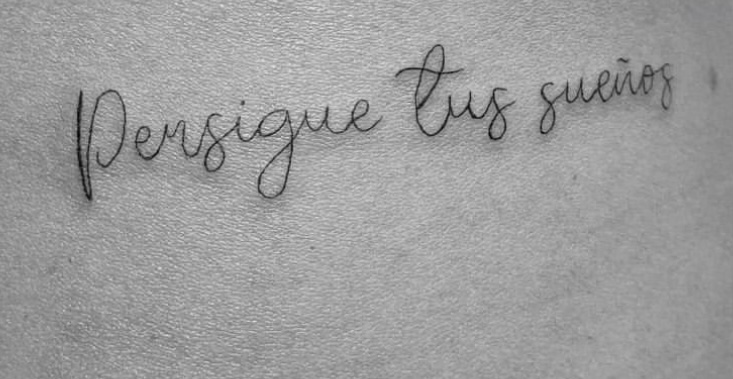 Persigue tus sueños